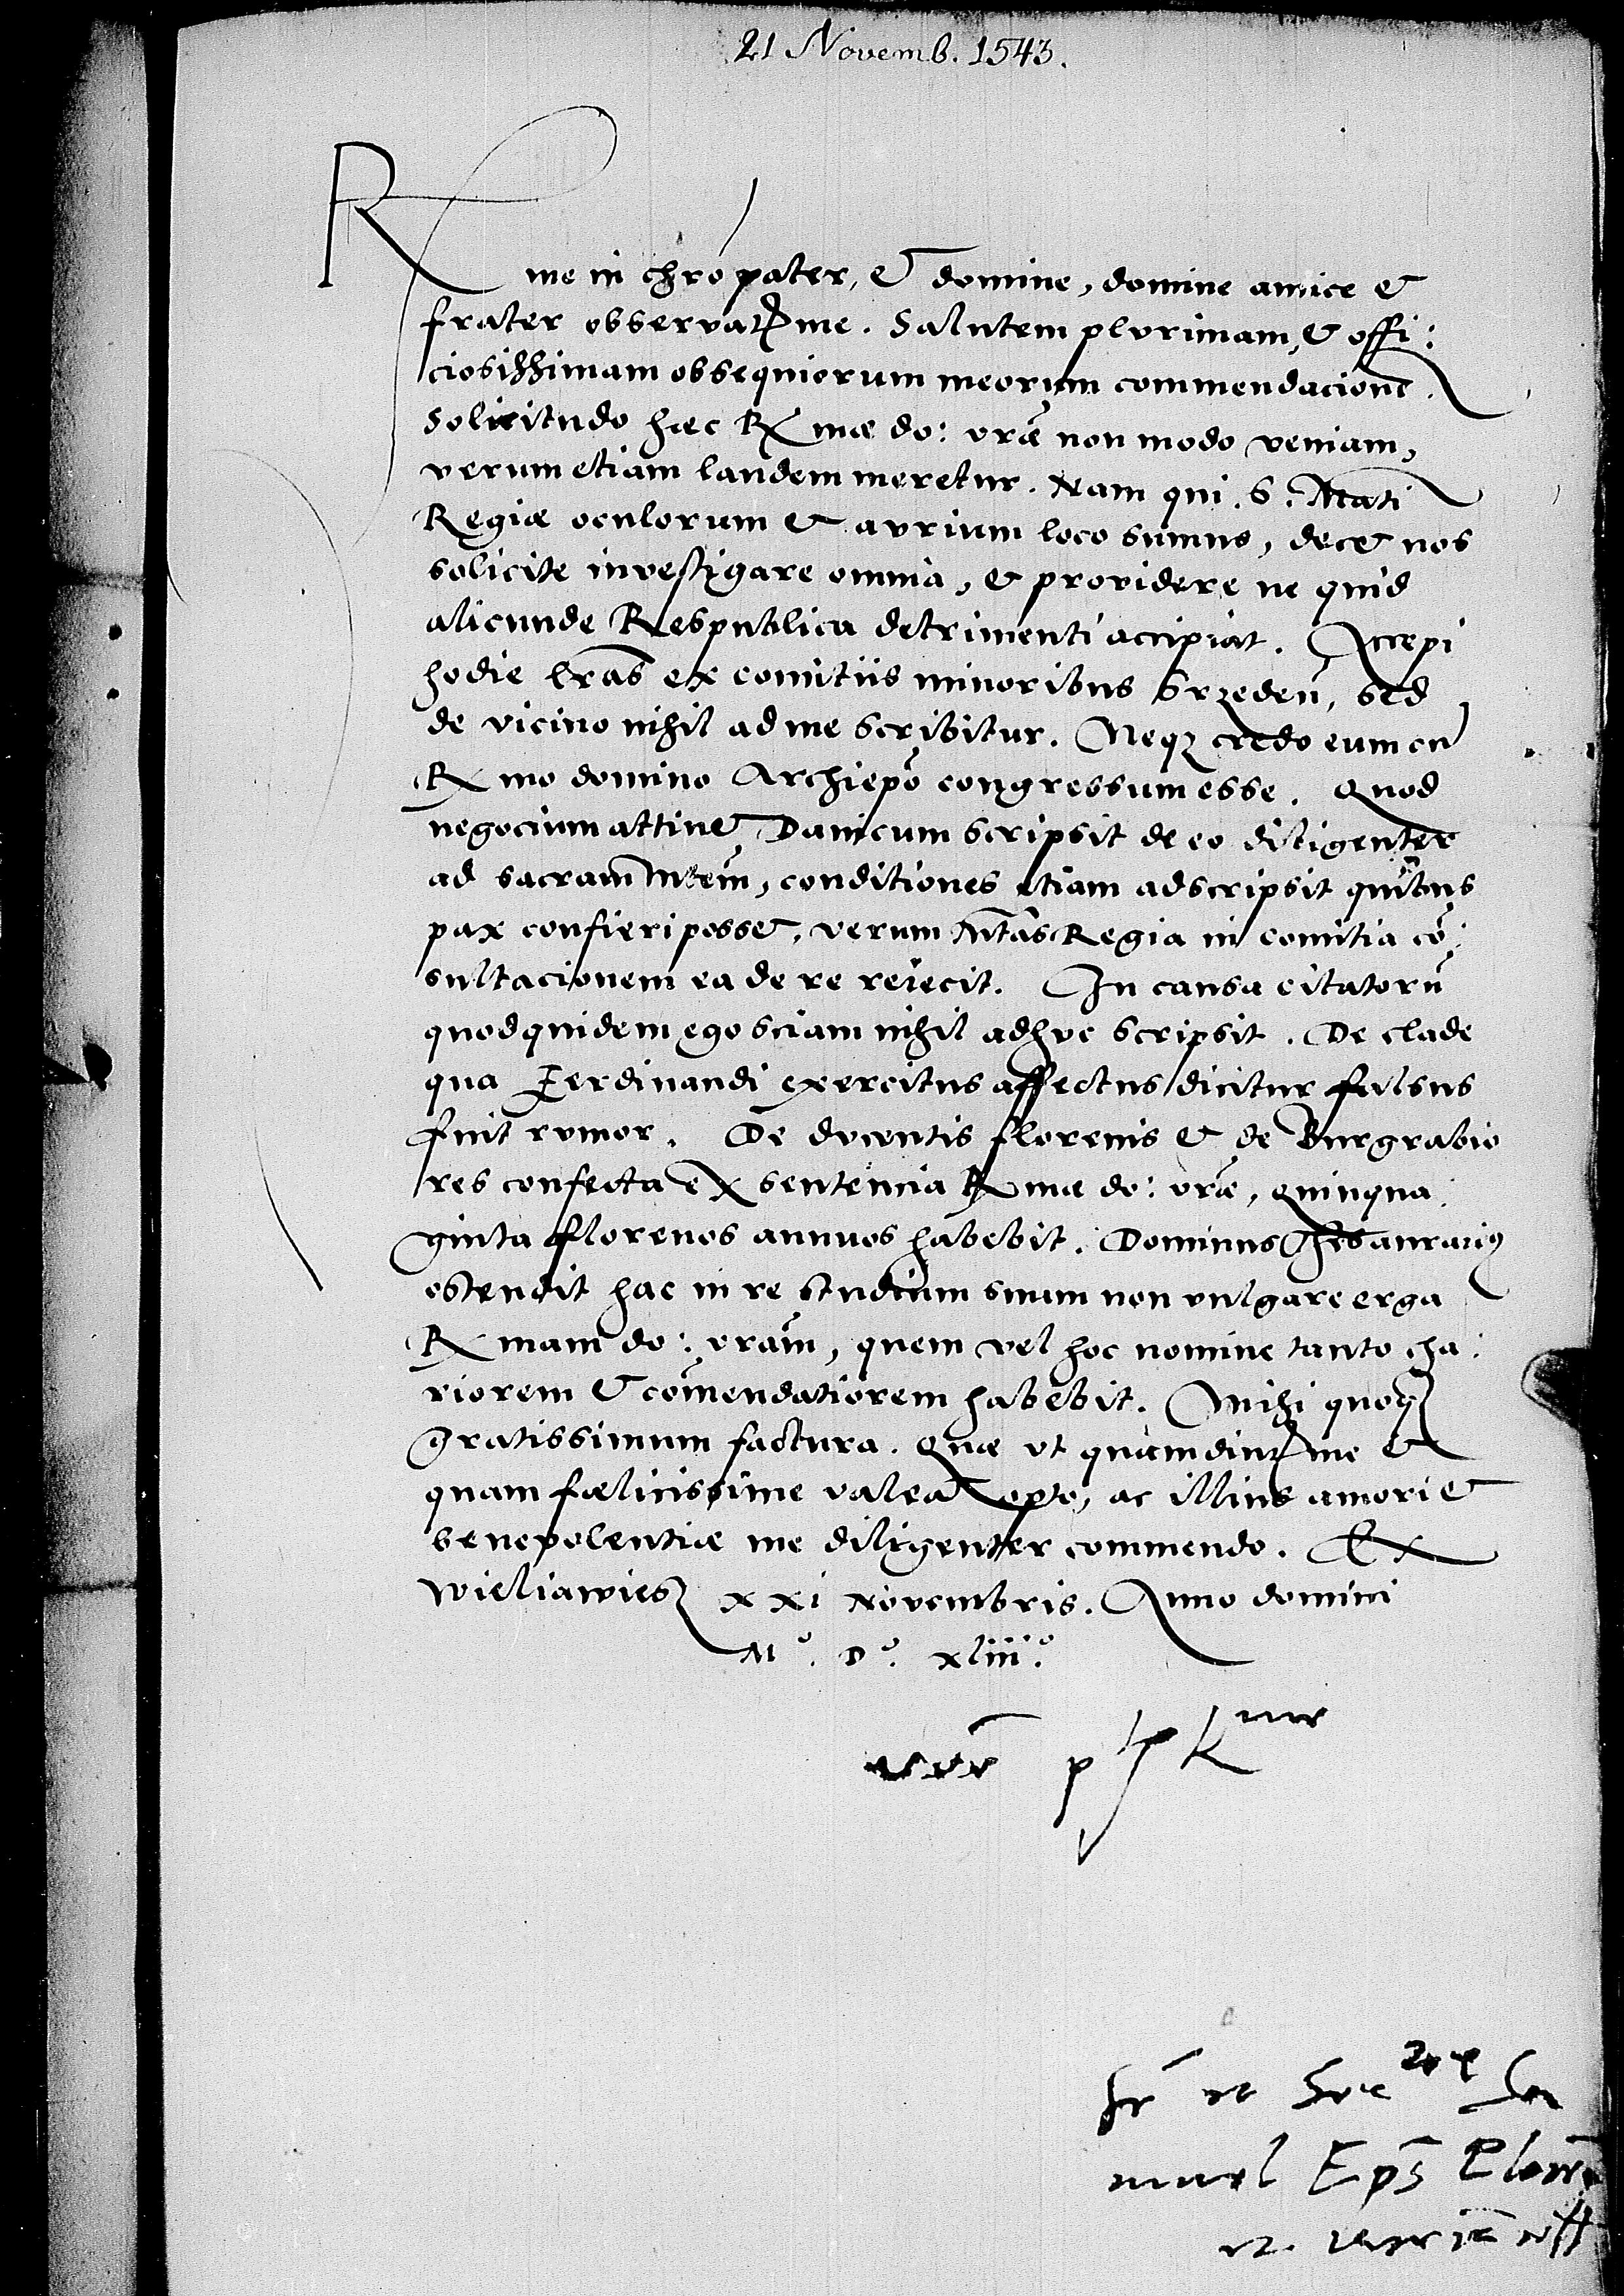 21 Novemb. 1543.
Rme in chro pater, et domine, domine amice et
frater observatme. Salutem plurimam, et offi:
ciosissimam obsequiorum meorum commendacione.
Solicitudo haec R mae do: vrae non modo veniam,
verum etiam laudem meretur. Nam qui S. Mati
Regiae oculorum et aurium loco sumus, decet nos
solicite investigare omnia, et providere ne quid
alicunde Respublica detrimenti accipiat. Accepi
hodie lras ex comitiis minoribus Srzeden, sed
de vicino nihil ad me scribitur. Neqz credo eum cu
R mo domino Archiepo congressum esse. Quod
negocium attinet Danicum scripsit de eo diligenter
ad sacram Mtem, conditiones etiam adscripsit quibus
pax confieri posset, verum Mtas Regia in comitia co:
sultacionem ea de re reiecit. In causa citatoru
quod quidem ego sciam nihil adhuc scripsit. De clade
qua Ferdinandi exercitus affectus dicitur falsus
fuit rumor. De ducentis florenis et de Burgrabio
res confecta ex sentencia R mae do: vrae, quinqua:
ginta florenos annuos habebit. Dominus Thesaurarius
ostendit hac in re studium suum non vulgare erga
R mam do: vram, quem vel hoc nomine tanto cha:
riorem et comendatiorem habebit. Mihi quoqz
gratissimum factura. Quae ut quamdiutme et
quam foelicissime valeat opto, ac illius amori et
benevolentiae me diligenter commendo. Ex
Wieliawies xxi Novembris. Anno domini
Mo. Do. xliiio.
Eps